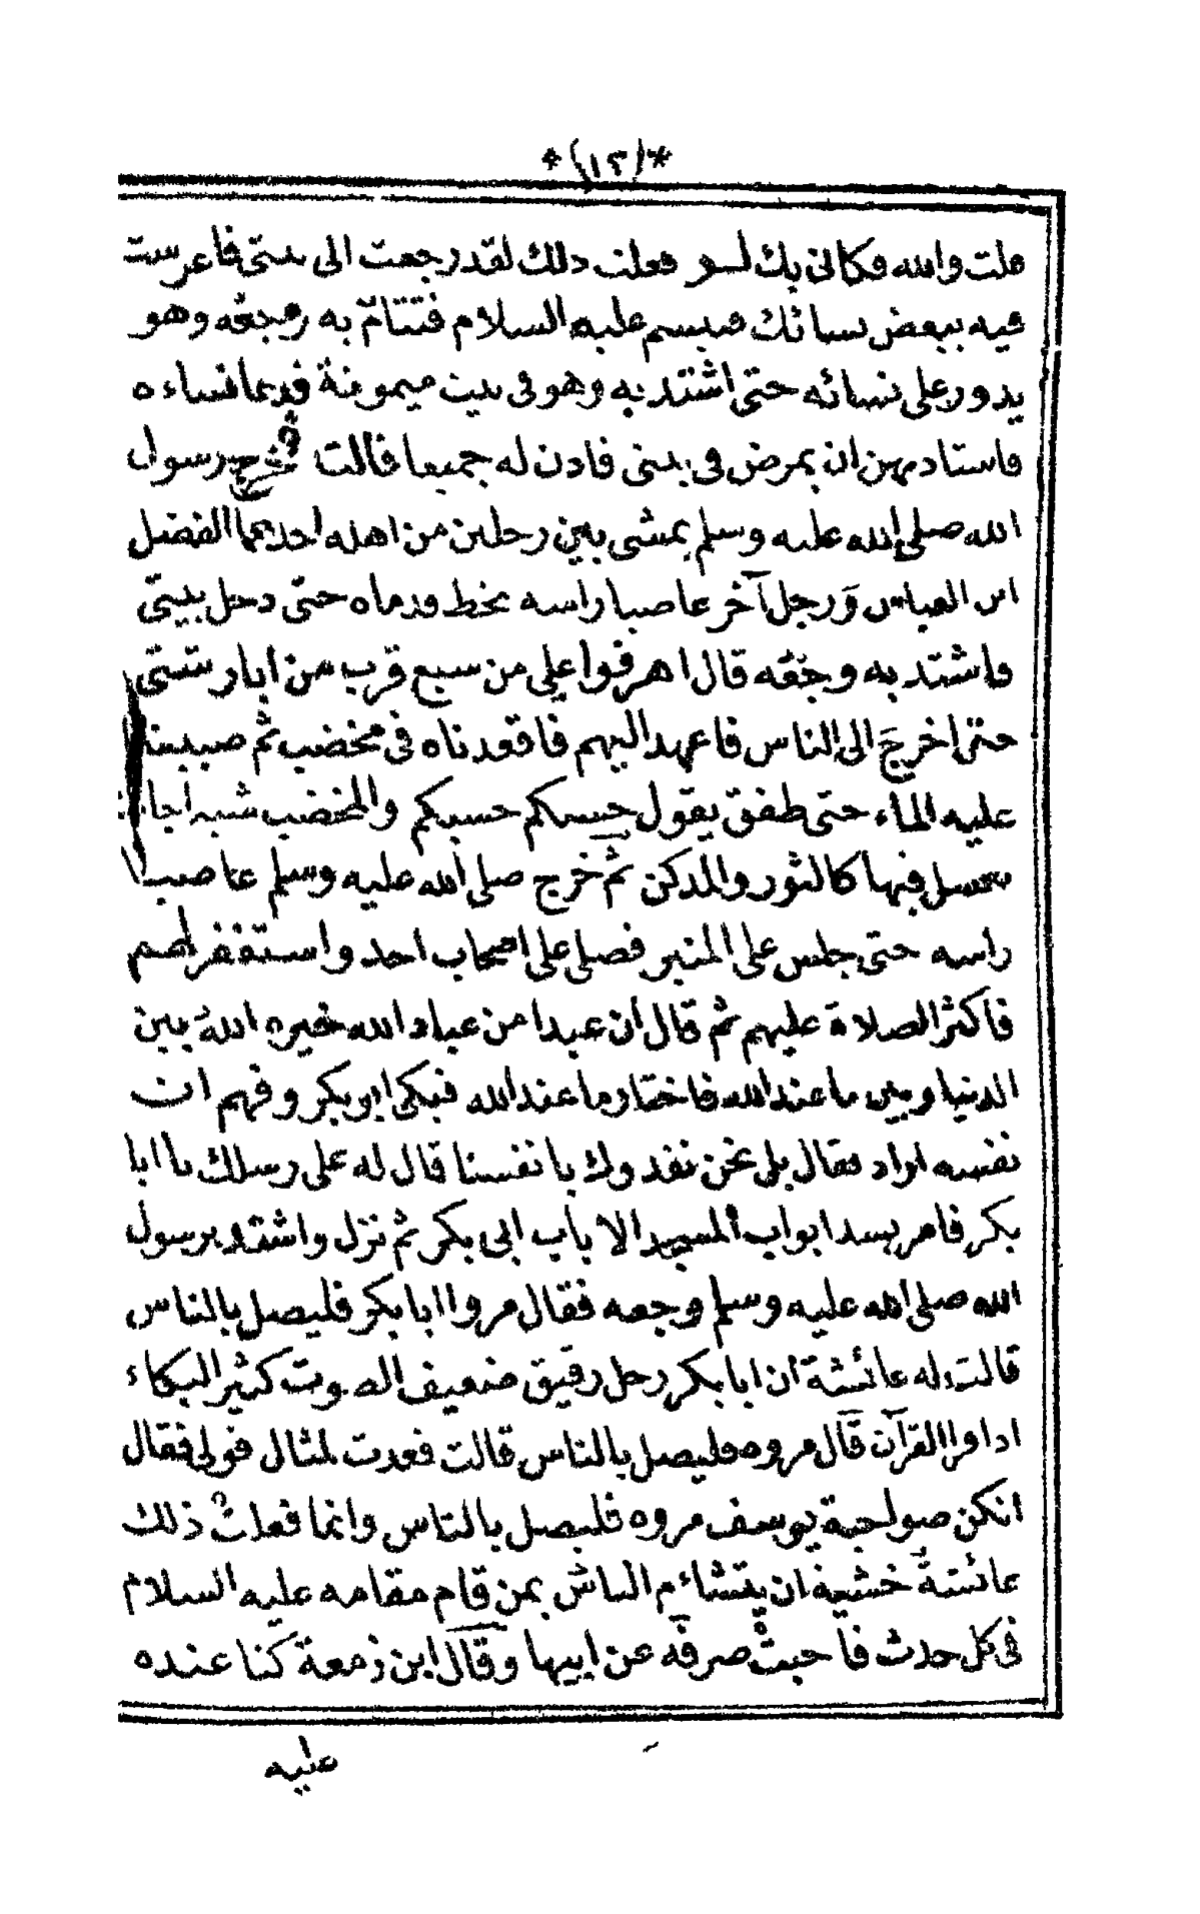 *(١٢)*
قلت والله فكانى بك لو فعلت ذلك لقد رجعت الى بيتى فاعرست
فيه ببعض نسائك فتبسم عليه السلام فتتامّ به وجعه وهو
يدور على نسائه حتى اشتد به وهو فى بيت ميمونة فدعا نساءه
فاستاذنهن ان يمرض فى بيتى فاذن له جميعا قالت فخرج رسول
الله صلى الله عليه وسلم يمشى بين رجلين من اهله احدهما الفضل
ابن العباس وَرجل آخر عاصبا راسه يخط قدماه حتى دخل بيتى
واشتد به وجعه قال اهرقوا على من سبع قرب من ابار شتى
حتى اخرجَ الى الناس فاعهد اليهم فاقعدناه فى مخضب ثم صببنا
عليه الماء حتى طفق يقول حسبكم حسبكم والمخضب شبه اجانة
يغسل فيها كالثور والمدكن ثم خرج صلى الله عليه وسلم عاصبا
راسه حتى جلس على المنبر فصلى على اصحاب احد واستغفر لهم
فاكثر الصلاة عليهم ثم قال ان عبدا من عباد الله خيره اللهُ بين
الدنيا وبين ما عند الله فاختار ما عند الله فبكى ابو بكر وفهم ان
نفسه اراد فقال بلى نحن نفدوك بانفسنا قال له على رسلك يا ابا
بكر فامر بسد ابواب المسجد الا باب ابى بكر ثم نزل واشتد برسول
الله صلى الله عليه وسلم وجعه فقال مروا ابا بكر فليصل بالناس
قالت له عائشة ان ابا بكر رجل رقيق ضعيف الصوت كثير البكاء
اذا قرا القرآن قال مروه فليصل بالناس قالت فعدت لمثال قولى فقال
انكن صواحبة يوسف مروه فليصل بالناس وانما فعلت ذلك
عائشة خشية ان يتشاءم الناس بمن قام مقامه عليه السلام
فى كل حدث فاحبت صرفه عن ابيها وقال ابن زمعة كنا عنده
عليه